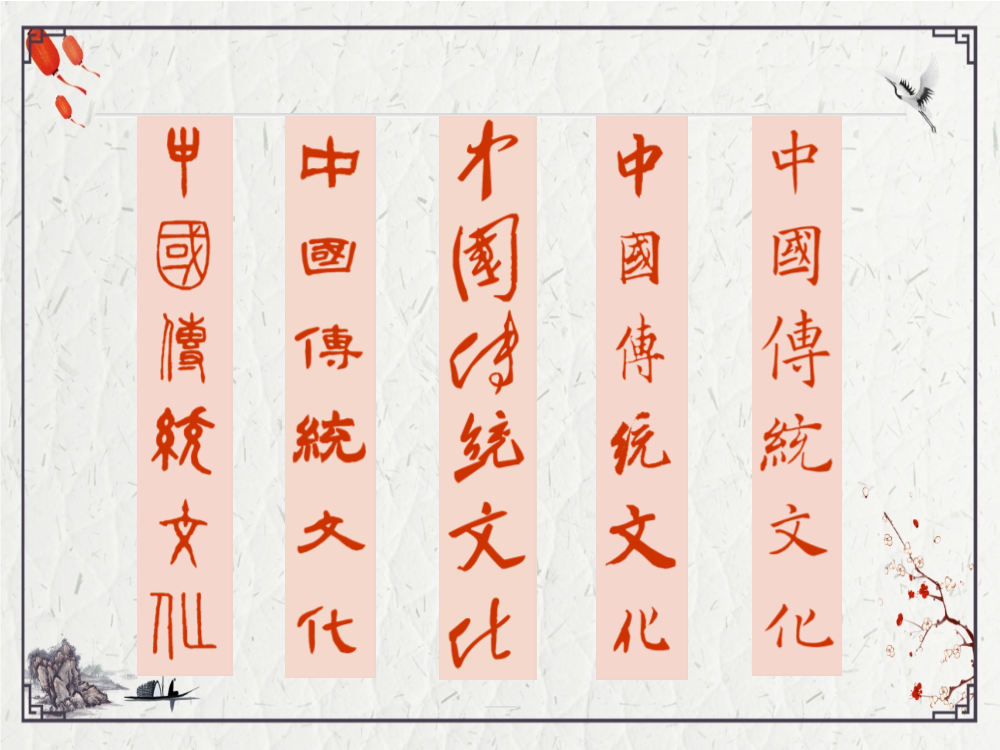 中國傳統文化
中國傳統文化
中國傳統文化
中國傳統文化
中國傳統文化